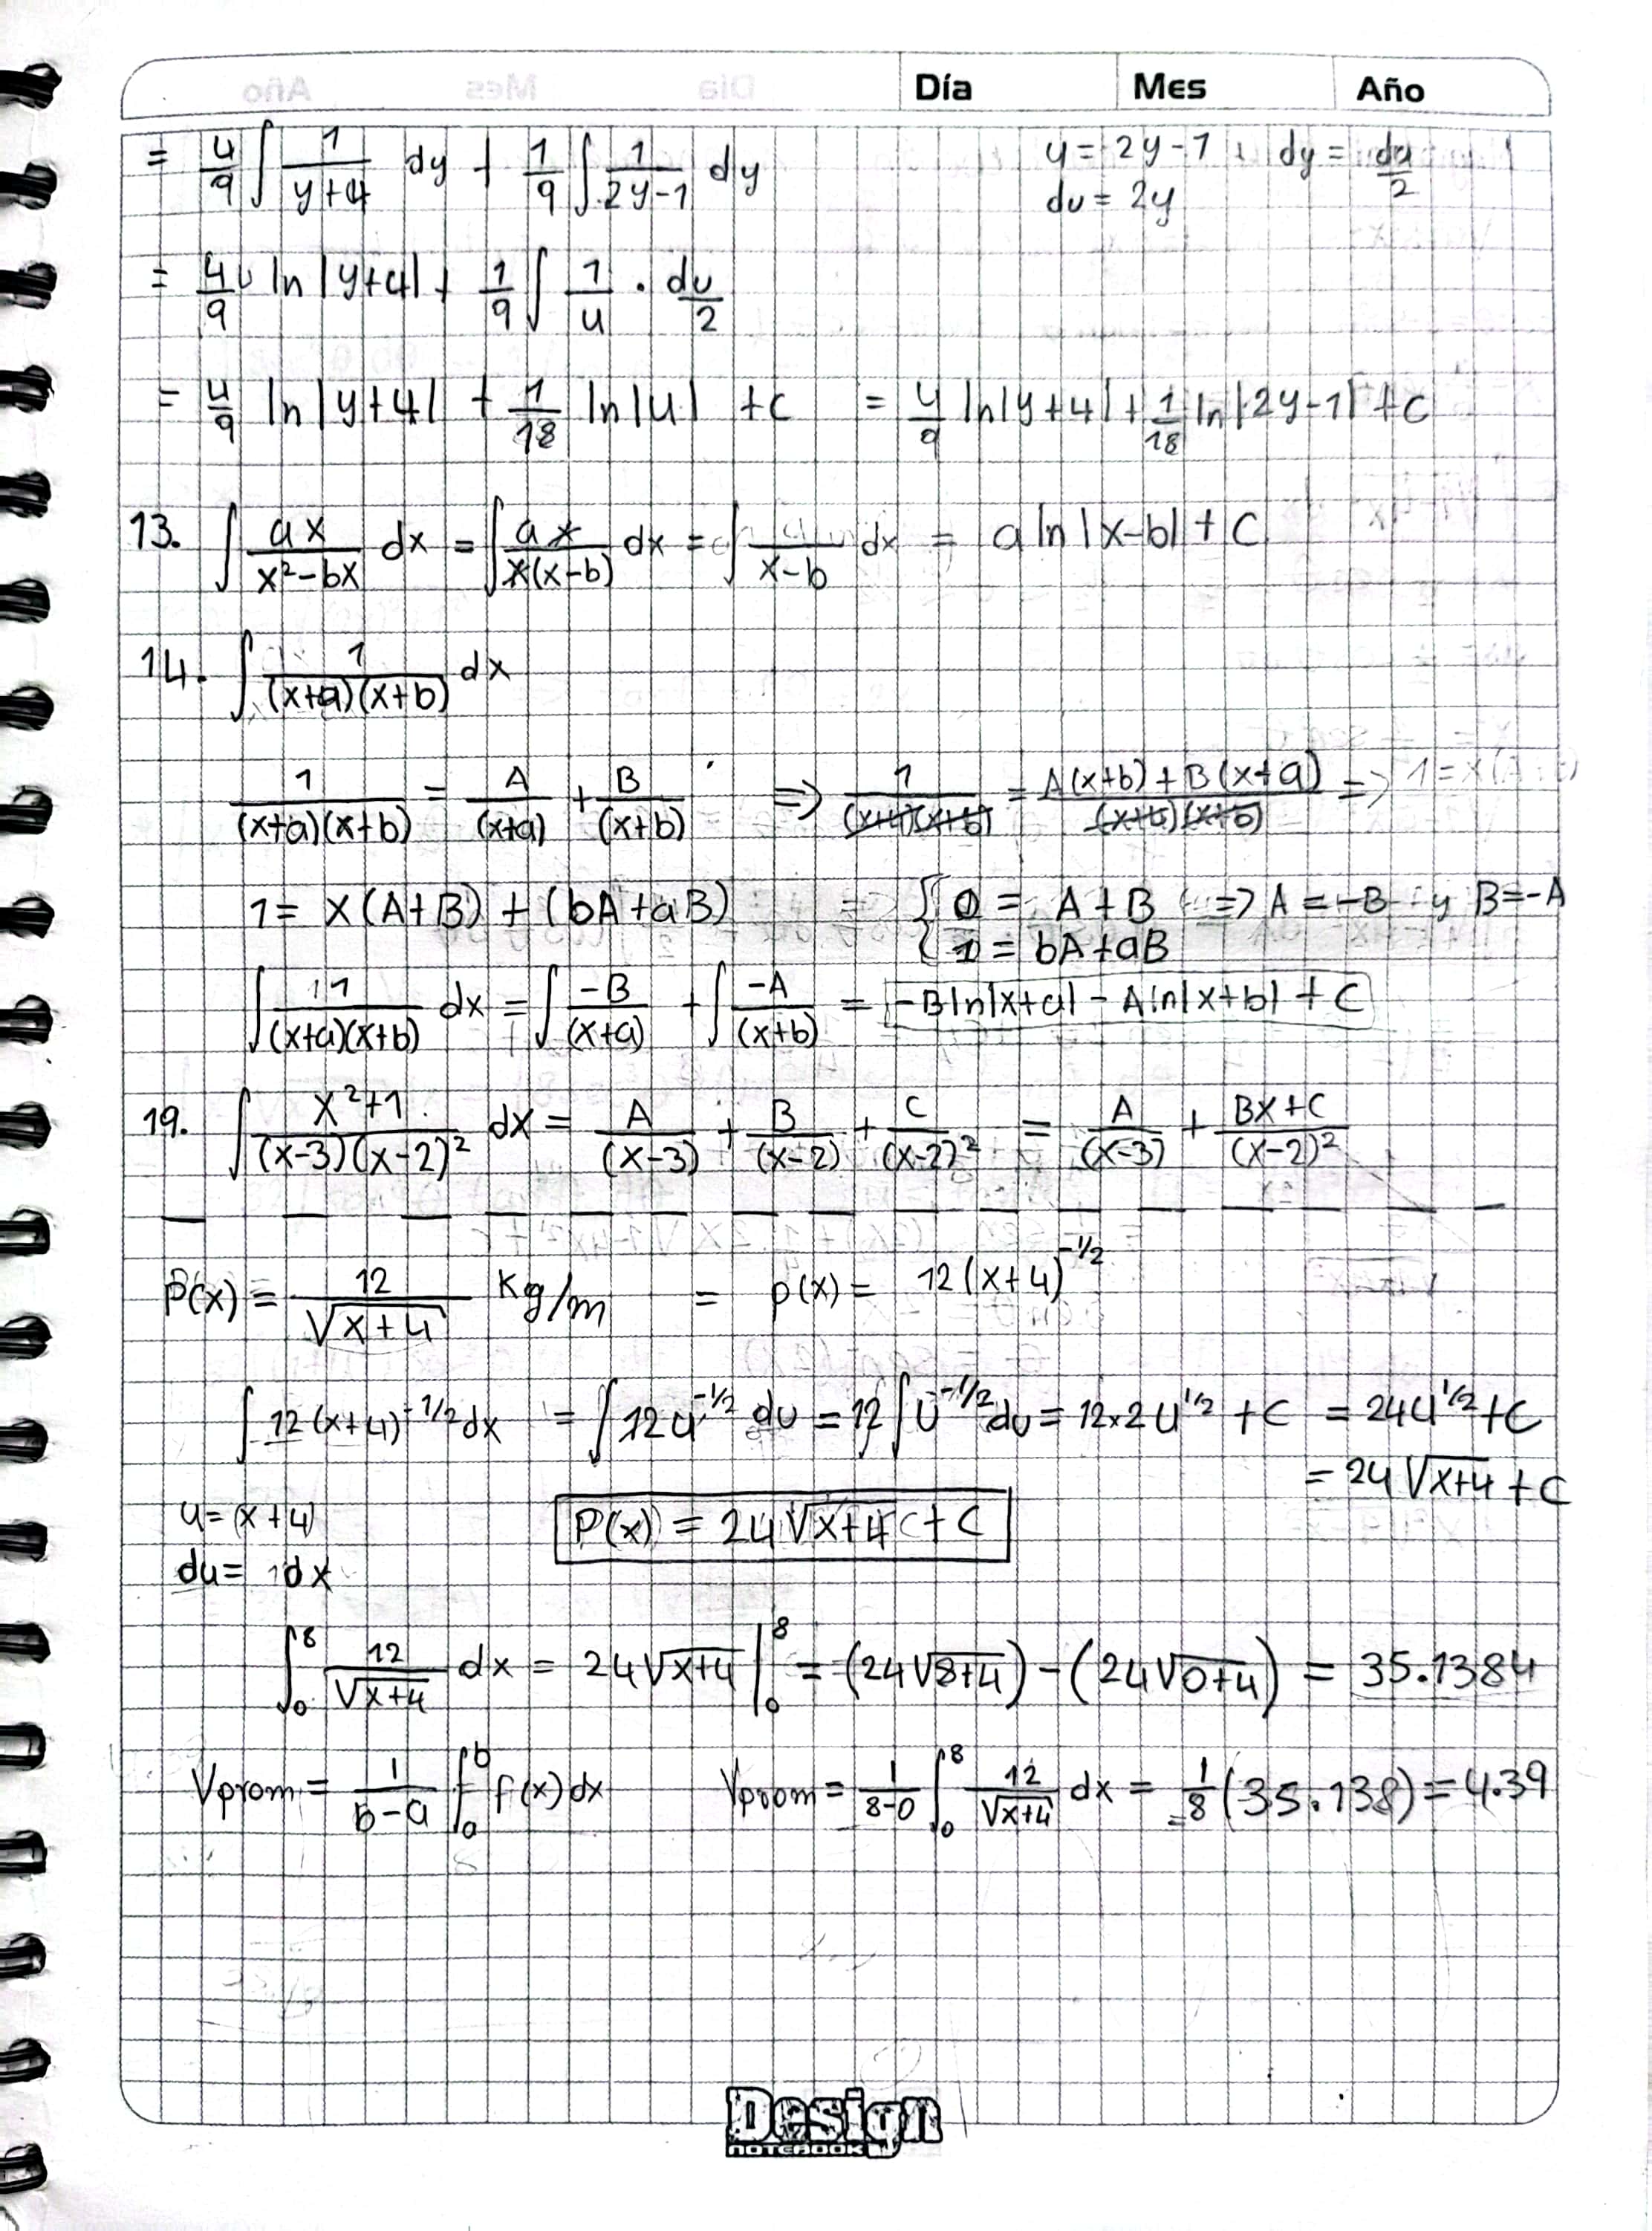 Día Mes Año
= 4/9 ∫ 1/(y+4) dy + 1/9 ∫ 1/(2y-1) dy    u = 2y-1, dy = du/2
du = 2y
= 4/9 ln|y+4| + 1/9 ∫ 1/u · du/2
= 4/9 ln|y+4| + 1/18 ln|u| + c = 4/9 ln|y+4| + 1/18 ln|2y-1| + C
13. ∫ ax/(x²-bx) dx = ∫ ax/(x(x-b)) dx = ∫ a/(x-b) dx = a ln|x-b| + C
14. ∫ 1/((x+a)(x+b)) dx
1/((x+a)(x+b)) = A/(x+a) + B/(x+b) => 1/((x+a)(x+b)) = (A(x+b)+B(x+a))/((x+a)(x+b)) =>
1 = x(A+B) + (bA+aB)    { 0 = A+B => A = -B y B=-A
1 = bA+aB
∫ 1/((x+a)(x+b)) dx = ∫ -B/(x+a) + ∫ -A/(x+b) = -B ln|x+a| - A ln|x+b| + C
19. ∫ (x²+1)/((x-3)(x-2)²) dx = A/(x-3) + B/(x-2) + C/(x-2)² = A/(x-3) + (Bx+C)/(x-2)²
P(x) = 12/√(x+4) Kg/m = p(x) = 12(x+4)^(-1/2)
∫ 12(x+4)^(-1/2) dx = ∫ 12u^(-1/2) du = 12 ∫ u^(-1/2) du = 12×2u^(1/2) + C = 24u^(1/2) + C
= 24√(x+4) + C
u = (x+4)    P(x) = 24√(x+4) + C
du = 1dx
∫₀⁸ 12/√(x+4) dx = 24√(x+4) |₀⁸ = (24√(8+4)) - (24√(0+4)) = 35.1384
Vprom = 1/(b-a) ∫ₐᵇ f(x)dx    Vprom = 1/(8-0) ∫₀⁸ 12/√(x+4) dx = 1/8 (35.138) = 4.39
Design
NOTEBOOK